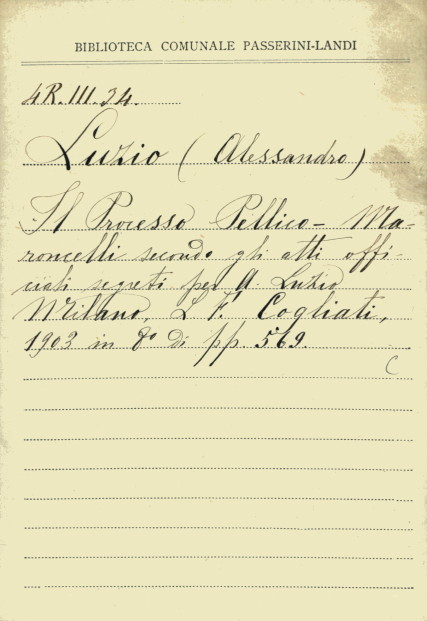 BIBLIOTECA COMUNALE PASSERINI-LANDI
4R.III.34.
Luzio (Alessandro)
Il Processo Pellico - Ma-
roncelli secondo gli atti offi-
ciali segreti per A. Luzio
Milano, L. F. Cogliati,
1903 in 8° di pp. 569.
C